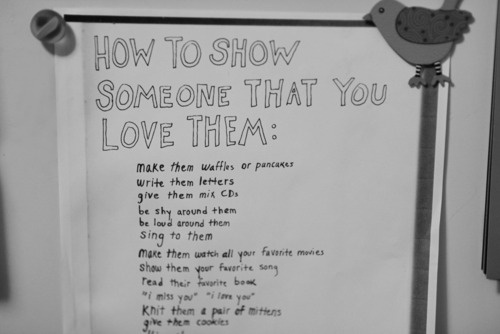 HOW TO SHOW
SOMEONE THAT YOU
LOVE THEM:
make them waffles or pancakes
write them letters
give them mix CDs
be shy around them
be loud around them
sing to them
make them watch all your favorite movies
show them your favorite song
read their favorite book
"i miss you" "i love you"
knit them a pair of mittens
give them cookies